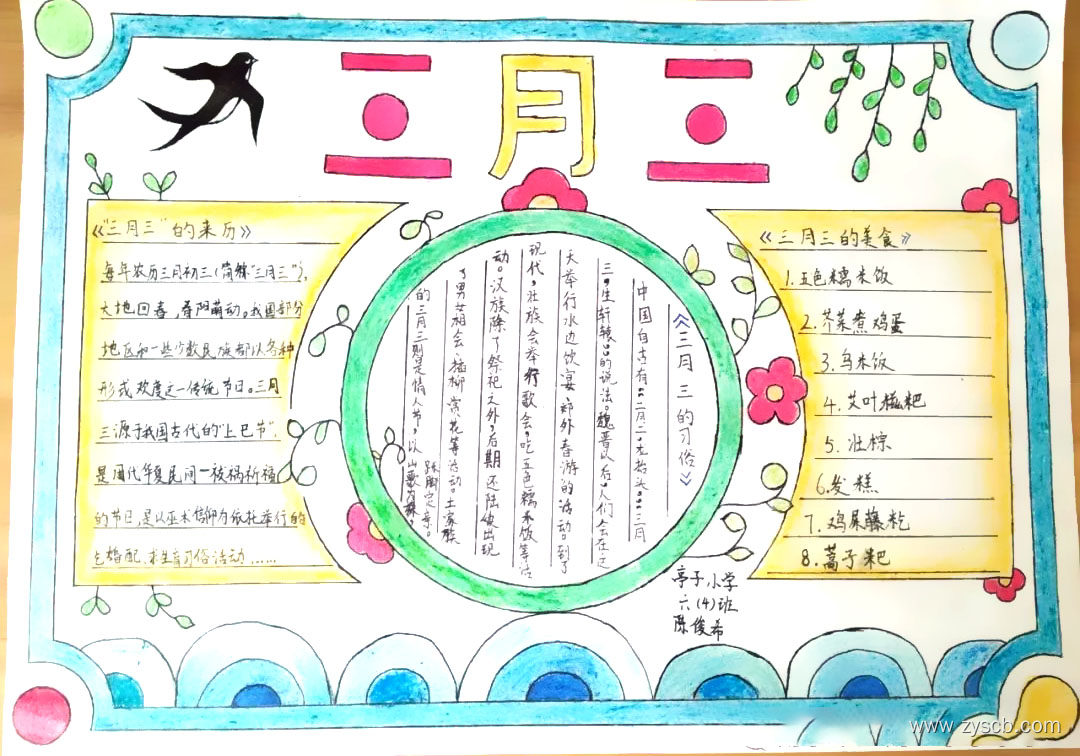 三月三
《“三月三”的来历》
每年农历三月初三(简称“三月三”),
大地回春,春阳萌动。我国部分
地区和一些少数民族都以各种
形式欢度这一传统节日。三月
三源于我国古代的“上巳节”,
是周代华夏民间一祓祸祈福
的节日,是以巫术信仰为依托举行的
乞婚配、求生育习俗活动……
《三月三的习俗》
中国自古有“二月二,龙抬头。”“三月
三,生轩辕”的说法。魏晋以后,人们会在这
天举行水边饮宴、郊外春游的活动。到了
现代,壮族会举行歌会,吃五色糯米饭等活
动。汉族除了祭祀之外,后期还陆续出现
了男女相会、插柳赏花等活动。土家族
的三月三则是情人节,以山歌为媒,
踩脚定亲。
《三月三的美食》
1.五色糯米饭
2.芥菜煮鸡蛋
3.乌米饭
4.艾叶糍粑
5.壮粽
6.发糕
7.鸡屎藤粑
8.蒿子粑
亭子小学
六(4)班
陈俊希
www.zyscb.com